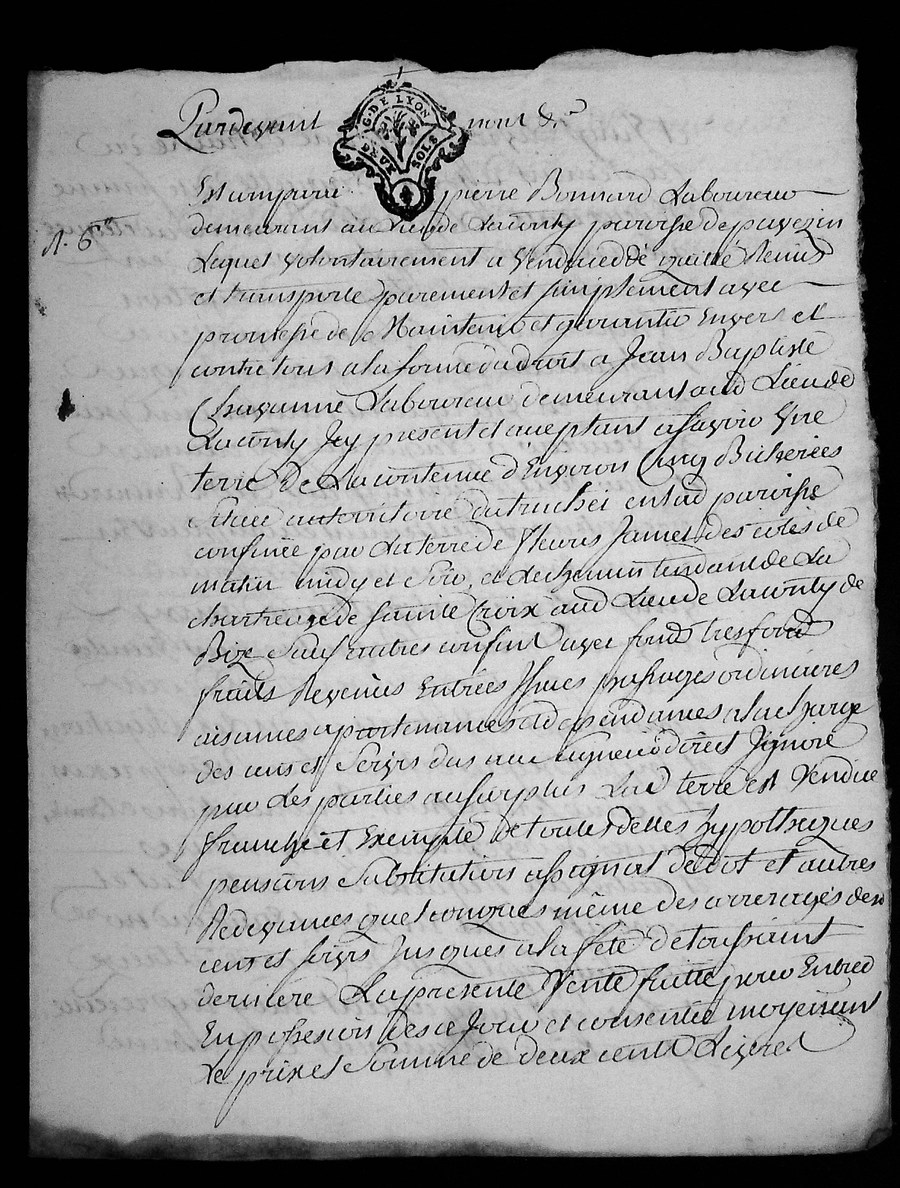 Pardevant nont &c
G. DE LYON
QUARE SOLS
Est comparu pierre Bonnard Laboureur
demeurant au Lieu de Laconty paroisse de pavezin
Lequel volontairement a vendu cedé quitté Remis
et transporte purement et simplement avec
promesse de Maintenir et garantir Envers et
contre tous a la forme du droit a Jean Baptiste
Chavanne Laboureur demeurant aud Lieu de
Laconty Jcy present et acceptant a sçavoir Une
terre De La contenue d'Environ Cinq Bicherées
Située au territoire du truchet en lad paroisse
confinée par La terre de fleury Jamet des cotés de
matin midy et Soir, et le chemin tendant de La
chartreuse de Sainte Croix aud Lieu de Laconty de
Bize Sauf autres confins avec fonds tresfond
fruits Revenus Entrées Jssues passages ordinaires
aisances apartenances et dependances a la charge
des cens et Servis dus aux seigneur direct Jgnoré
par les parties au surplus Lad terre est Vendue
franche et Exempte de toutes dettes hypotheques
pensions Substitutions assignat de dot et autres
Redevances quelconques même des arrerages desd
cens et servis Jusques a la fete de toussaint
derniere La presente Vente faitte pour Entrer
En possession des ce Jour et consentie moyenant
Le prix et Somme de deux cents Livres